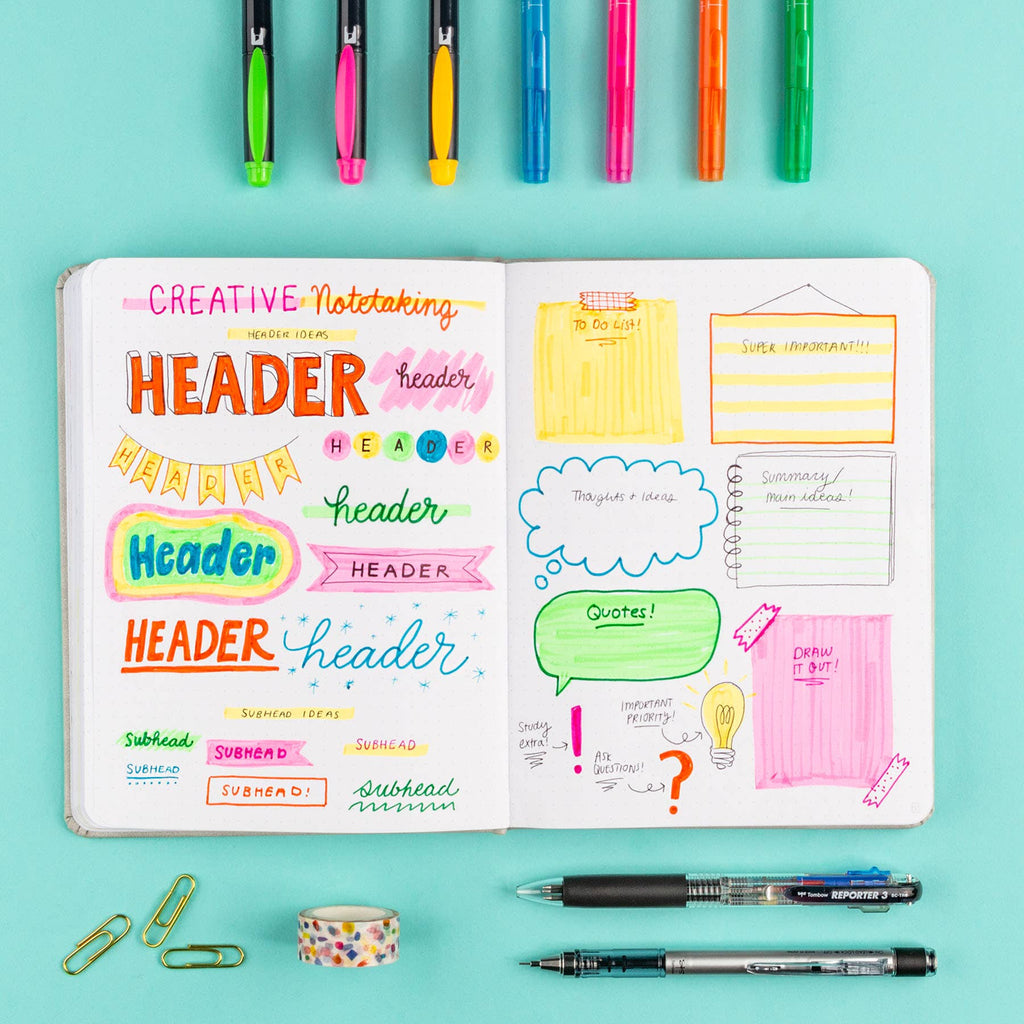 CREATIVE Notetaking
HEADER IDEAS
HEADER
header
HEADER
HEADER
header
Header
HEADER
HEADER
header
SUBHEAD IDEAS
Subhead
SUBHEAD
SUBHEAD
SUBHEAD
SUBHEAD!
subhead
TO DO LIST!
SUPER IMPORTANT!!!
Thoughts + Ideas
Summary/
main ideas!
Quotes!
DRAW
IT OUT!
IMPORTANT
PRIORITY!
Study
extra!
!
ASK
QUESTIONS!
?
Tombow REPORTER 3